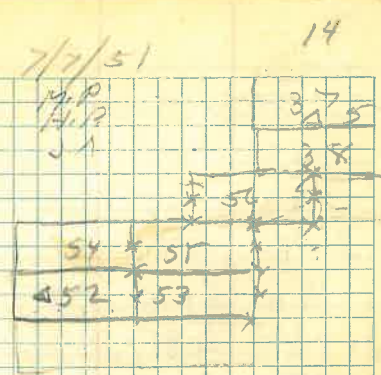 14
7/7/51
M.P
H.P.
J A
37
Δ 5
38
56
54 55
Δ52 53